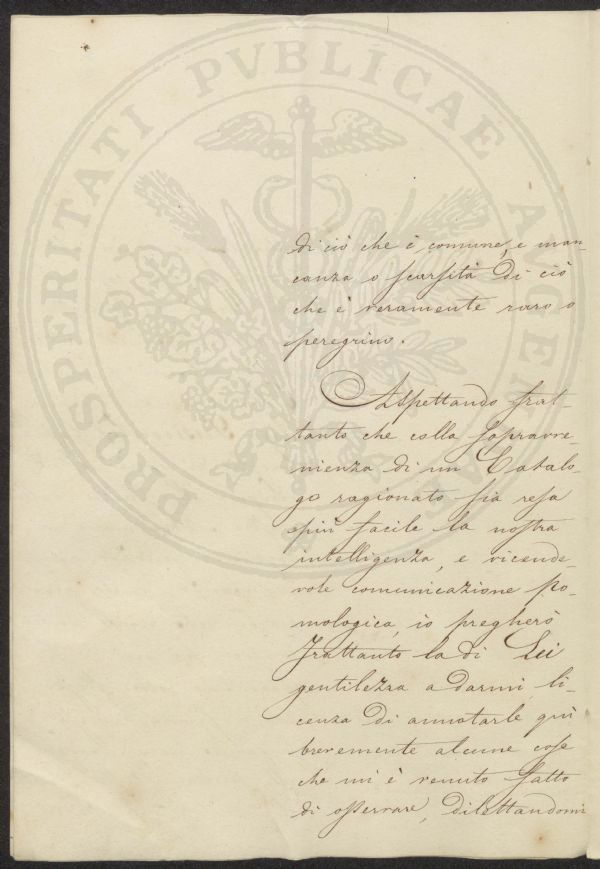 PROSPERITATI PVBLICAE AVGENDAE
di ciò che è comune, e man-
canza o scarsità di ciò
che è veramente raro o
peregrino.
Aspettando frat-
tanto che colla sopravve-
nienza di un Catalo-
go ragionato sia resa
più facile la nostra
intelligenza, e vicende-
vole comunicazione po-
mologica, io pregherò
frattanto la di Lei
gentilezza a darmi li-
cenza di annotarle quì
brevemente alcune cose
che mi è venuto fatto
di osservare, dilettandomi